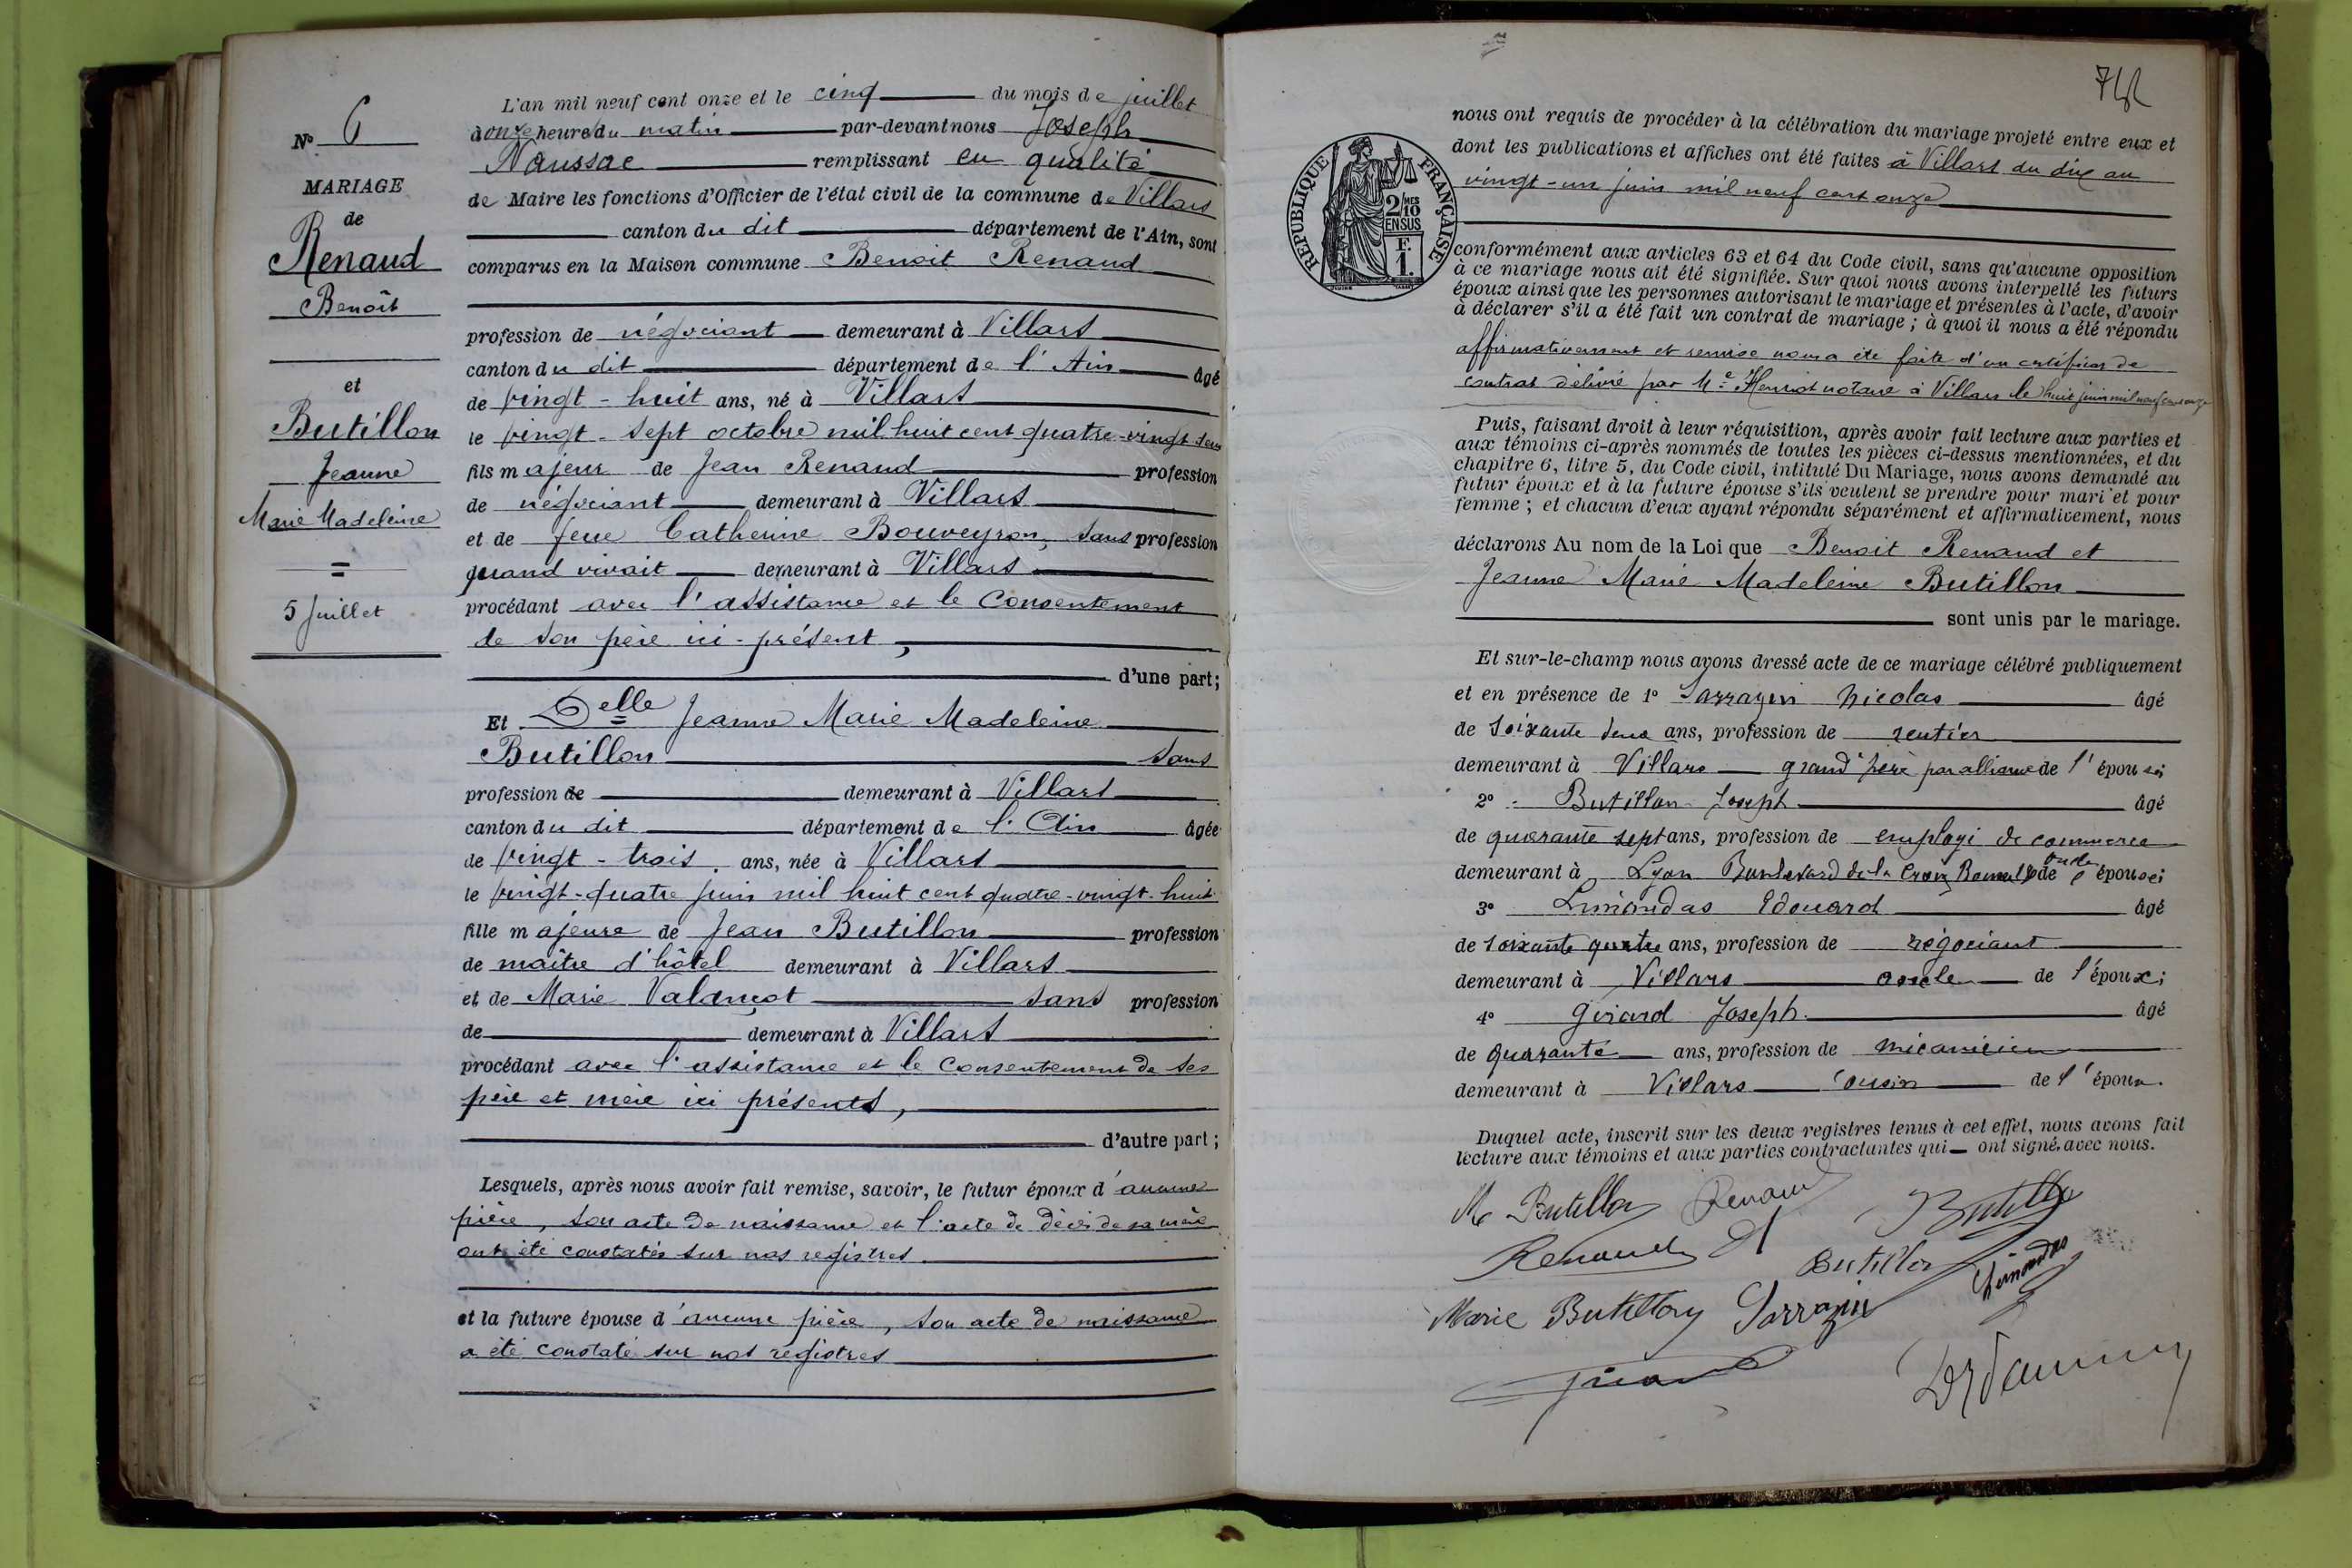 N° 6
MARIAGE
de
Renaud
Benoît
et
Butillon
Jeanne
Marie Madeleine
5 Juillet
L'an mil neuf cent onze et le cinq du mois de juillet
à onze heure du matin par-devant nous Joseph
Naussac remplissant en qualité
de Maire les fonctions d'Officier de l'état civil de la commune de Villars
canton du dit département de l'Ain, sont
comparus en la Maison commune Benoit Renaud
profession de négociant demeurant à Villars
canton du dit département de l'Ain âgé
de vingt-huit ans, né à Villars
le vingt-sept octobre mil huit cent quatre-vingt deux
fils majeur de Jean Renaud profession
de négociant demeurant à Villars
et de feue Catherine Bouveyron, sans profession
quand vivait demeurant à Villars
procédant avec l'assistance et le consentement
de son père ici-présent,
d'une part;
Et Delle Jeanne Marie Madeleine
Butillon sans
profession de demeurant à Villars
canton du dit département de l'Ain âgée
de vingt-trois ans, née à Villars
le vingt-quatre juin mil huit cent quatre-vingt-huit
fille majeure de Jean Butillon profession
de maître d'hôtel demeurant à Villars
et de Marie Valançot sans profession
de demeurant à Villars
procédant avec l'assistance et le consentement de ses
père et mère ici présents,
d'autre part;
Lesquels, après nous avoir fait remise, savoir, le futur époux d'aucune
pièce, son acte de naissance et l'acte de décès de sa mère
ont été constatés sur nos registres.
et la future épouse d'aucune pièce, son acte de naissance
a été constaté sur nos registres
nous ont requis de procéder à la célébration du mariage projeté entre eux et
dont les publications et affiches ont été faites à Villars du dix au
vingt-un juin mil neuf cent onze
RÉPUBLIQUE FRANÇAISE
2/10 MES
EN SUS
F.
1.
conformément aux articles 63 et 64 du Code civil, sans qu'aucune opposition
à ce mariage nous ait été signifiée. Sur quoi nous avons interpellé les futurs
époux ainsi que les personnes autorisant le mariage et présentes à l'acte, d'avoir
à déclarer s'il a été fait un contrat de mariage; à quoi il nous a été répondu
affirmativement et remise nous a été faite d'un certificat de
contrat délivré par Me Henriot notaire à Villars le huit juin mil neuf cent onze
Puis, faisant droit à leur réquisition, après avoir fait lecture aux parties et
aux témoins ci-après nommés de toutes les pièces ci-dessus mentionnées, et du
chapitre 6, titre 5, du Code civil, intitulé Du Mariage, nous avons demandé au
futur époux et à la future épouse s'ils veulent se prendre pour mari et pour
femme; et chacun d'eux ayant répondu séparément et affirmativement, nous
déclarons Au nom de la Loi que Benoit Renaud et
Jeanne Marie Madeleine Butillon
sont unis par le mariage.
Et sur-le-champ nous avons dressé acte de ce mariage célébré publiquement
et en présence de 1° Sarrazin Nicolas âgé
de soixante deux ans, profession de rentier
demeurant à Villars grand'père par alliance de l'épouse;
2° Butillon Joseph âgé
de quarante sept ans, profession de employé de commerce
demeurant à Lyon Boulevard de la Croix Rousse oncle de l'épouse;
3° Limandas Edouard âgé
de soixante quatre ans, profession de négociant
demeurant à Villars oncle de l'époux;
4° Girard Joseph âgé
de quarante ans, profession de mécanicien
demeurant à Villars cousin de l'époux.
Duquel acte, inscrit sur les deux registres tenus à cet effet, nous avons fait
lecture aux témoins et aux parties contractantes qui ont signé avec nous.
M Butillon Renaud Butillon
Renaud Butillon Limandas
Marie Butillon Sarrazin
Girard